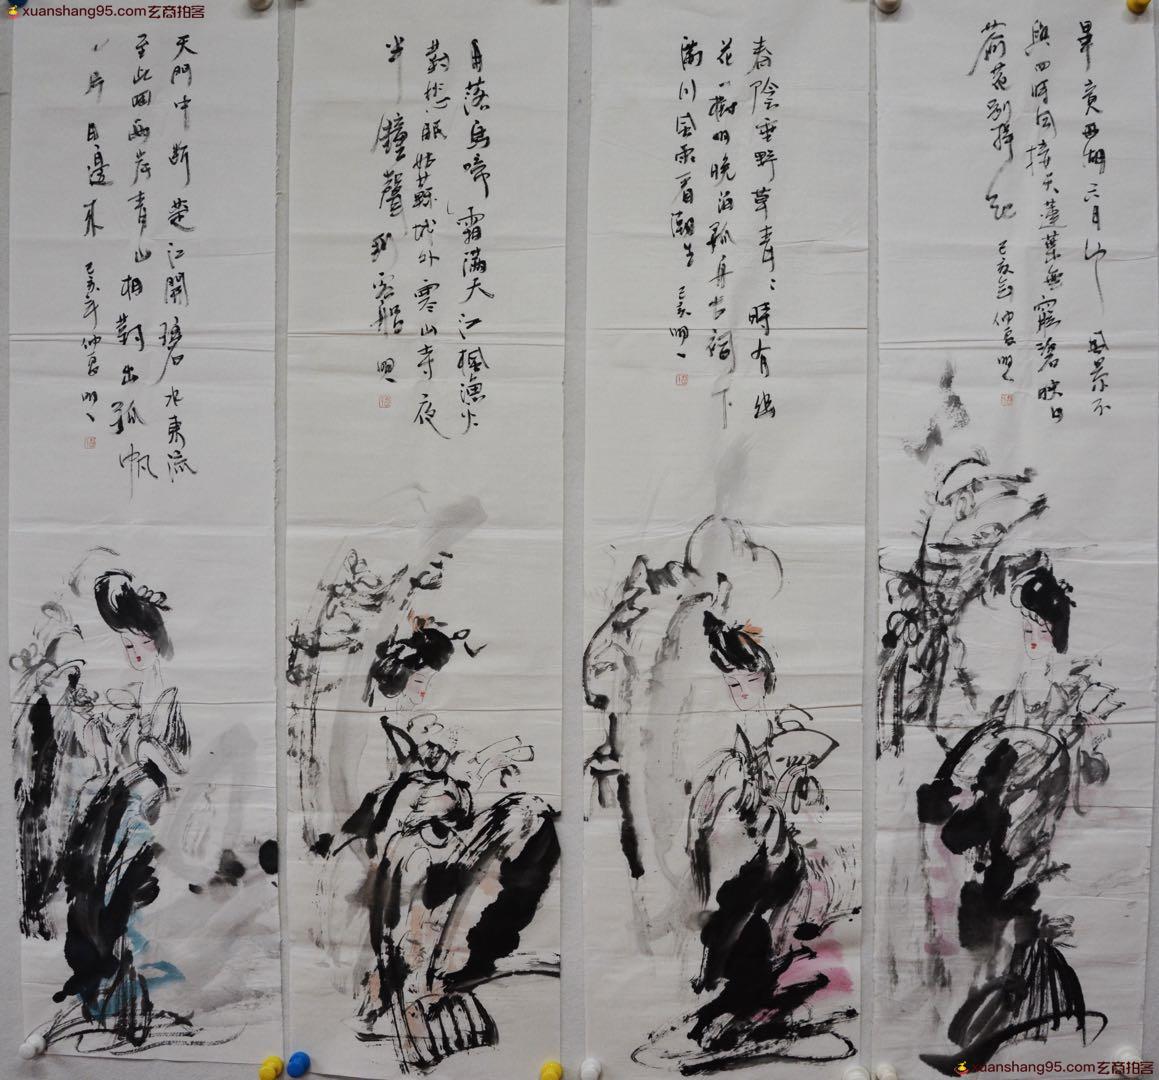 xuanshang95.com玄商拍客
xuanshang95.com玄商拍客
xuanshang95.com玄商拍客
畢竟西湖六月中風景不
與四時同接天蓮葉無窮碧映日
荷花別樣紅 己亥年仲春明
春陰垂野草青〻時有幽
花一樹明晚泊孤舟古祠下
滿川風雨看潮生 己亥明
月落烏啼霜滿天江楓漁火
對愁眠姑蘇城外寒山寺夜
半鐘聲到客船 明
天門中斷楚江開碧水東流
至此回兩岸青山相對出孤帆
一片日邊來 己亥年仲春明
xuanshang95.com玄商拍客